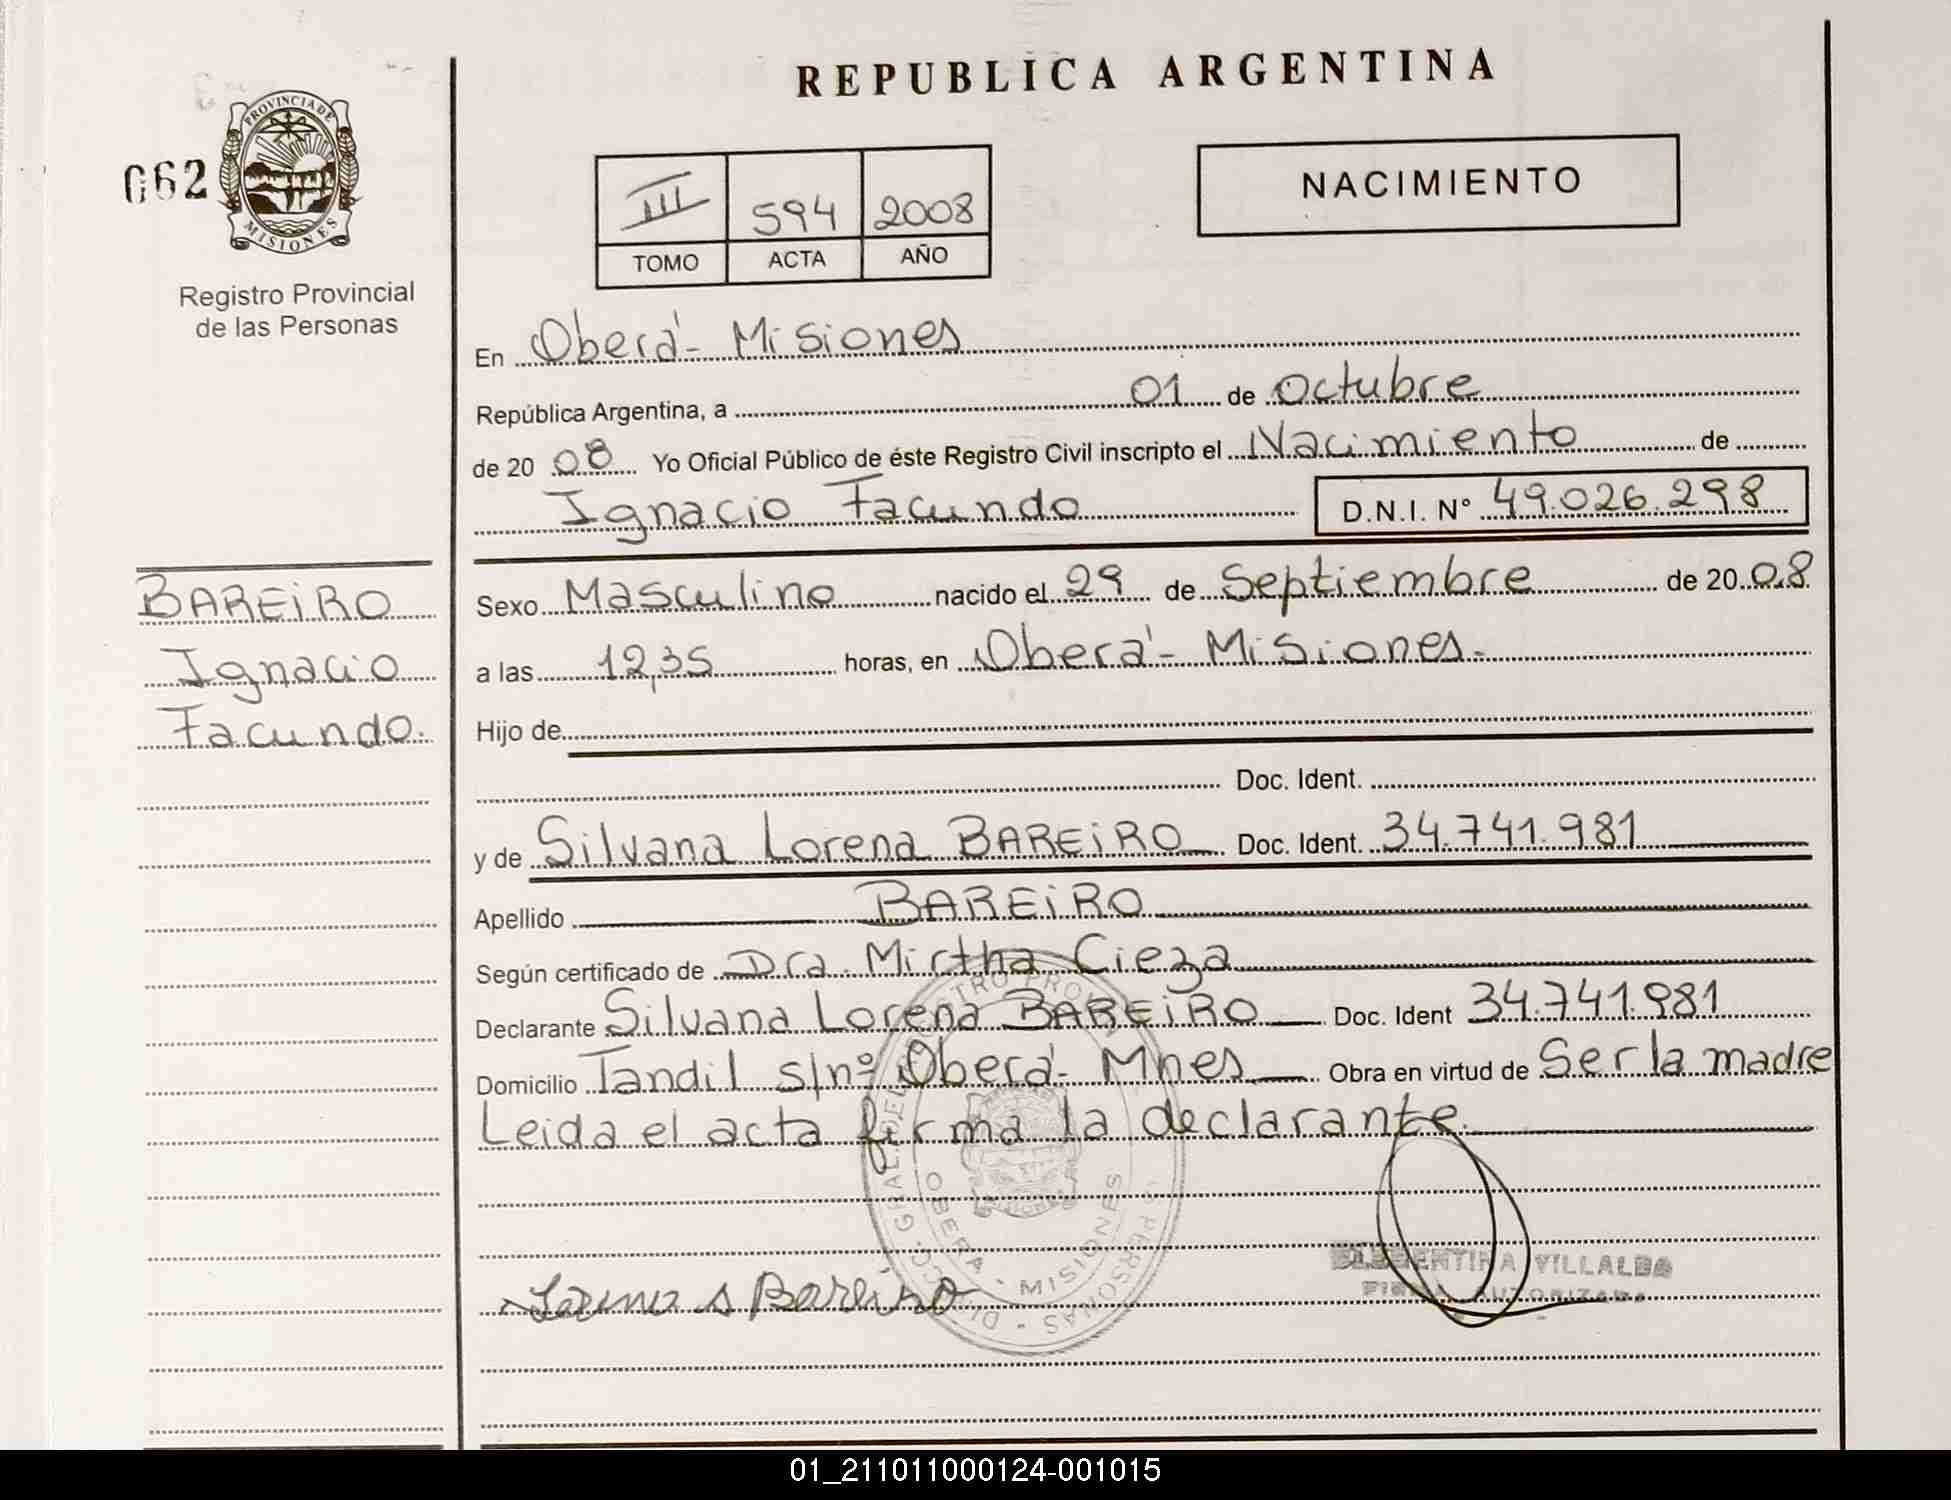 REPUBLICA ARGENTINA
062
PROVINCIA DE
MISIONES
Registro Provincial
de las Personas
III 594 2008
TOMO ACTA AÑO
NACIMIENTO
En Oberá - Misiones
República Argentina, a 01 de Octubre
de 20 08 Yo Oficial Público de éste Registro Civil inscripto el Nacimiento de
Ignacio Facundo D.N.I. N° 49.026.298
BAREiRO
Ignacio
Facundo.
Sexo Masculino nacido el 29 de Septiembre de 20 08
a las 12,35 horas, en Oberá - Misiones.
Hijo de
Doc. Ident.
y de Silvana Lorena BAREiRO Doc. Ident. 34.741.981
Apellido BAREiRO
Según certificado de Dra. Mirtha Cieza
Declarante Silvana Lorena BAREiRO Doc. Ident 34.741.981
Domicilio Tandil s/nº Oberá - Mnes Obra en virtud de Ser la madre
Leida el acta firma la declarante.
OBERA - MISIONES
Bareiro
VILLALBA
01_211011000124-001015